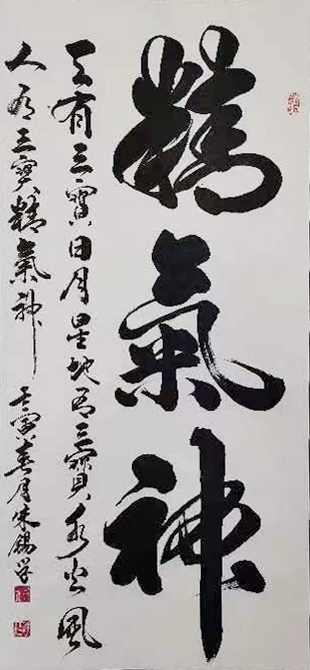 精氣神
天有三寶日月星地有三寶水火風
人有三寶精氣神
壬寅 月朱錫学